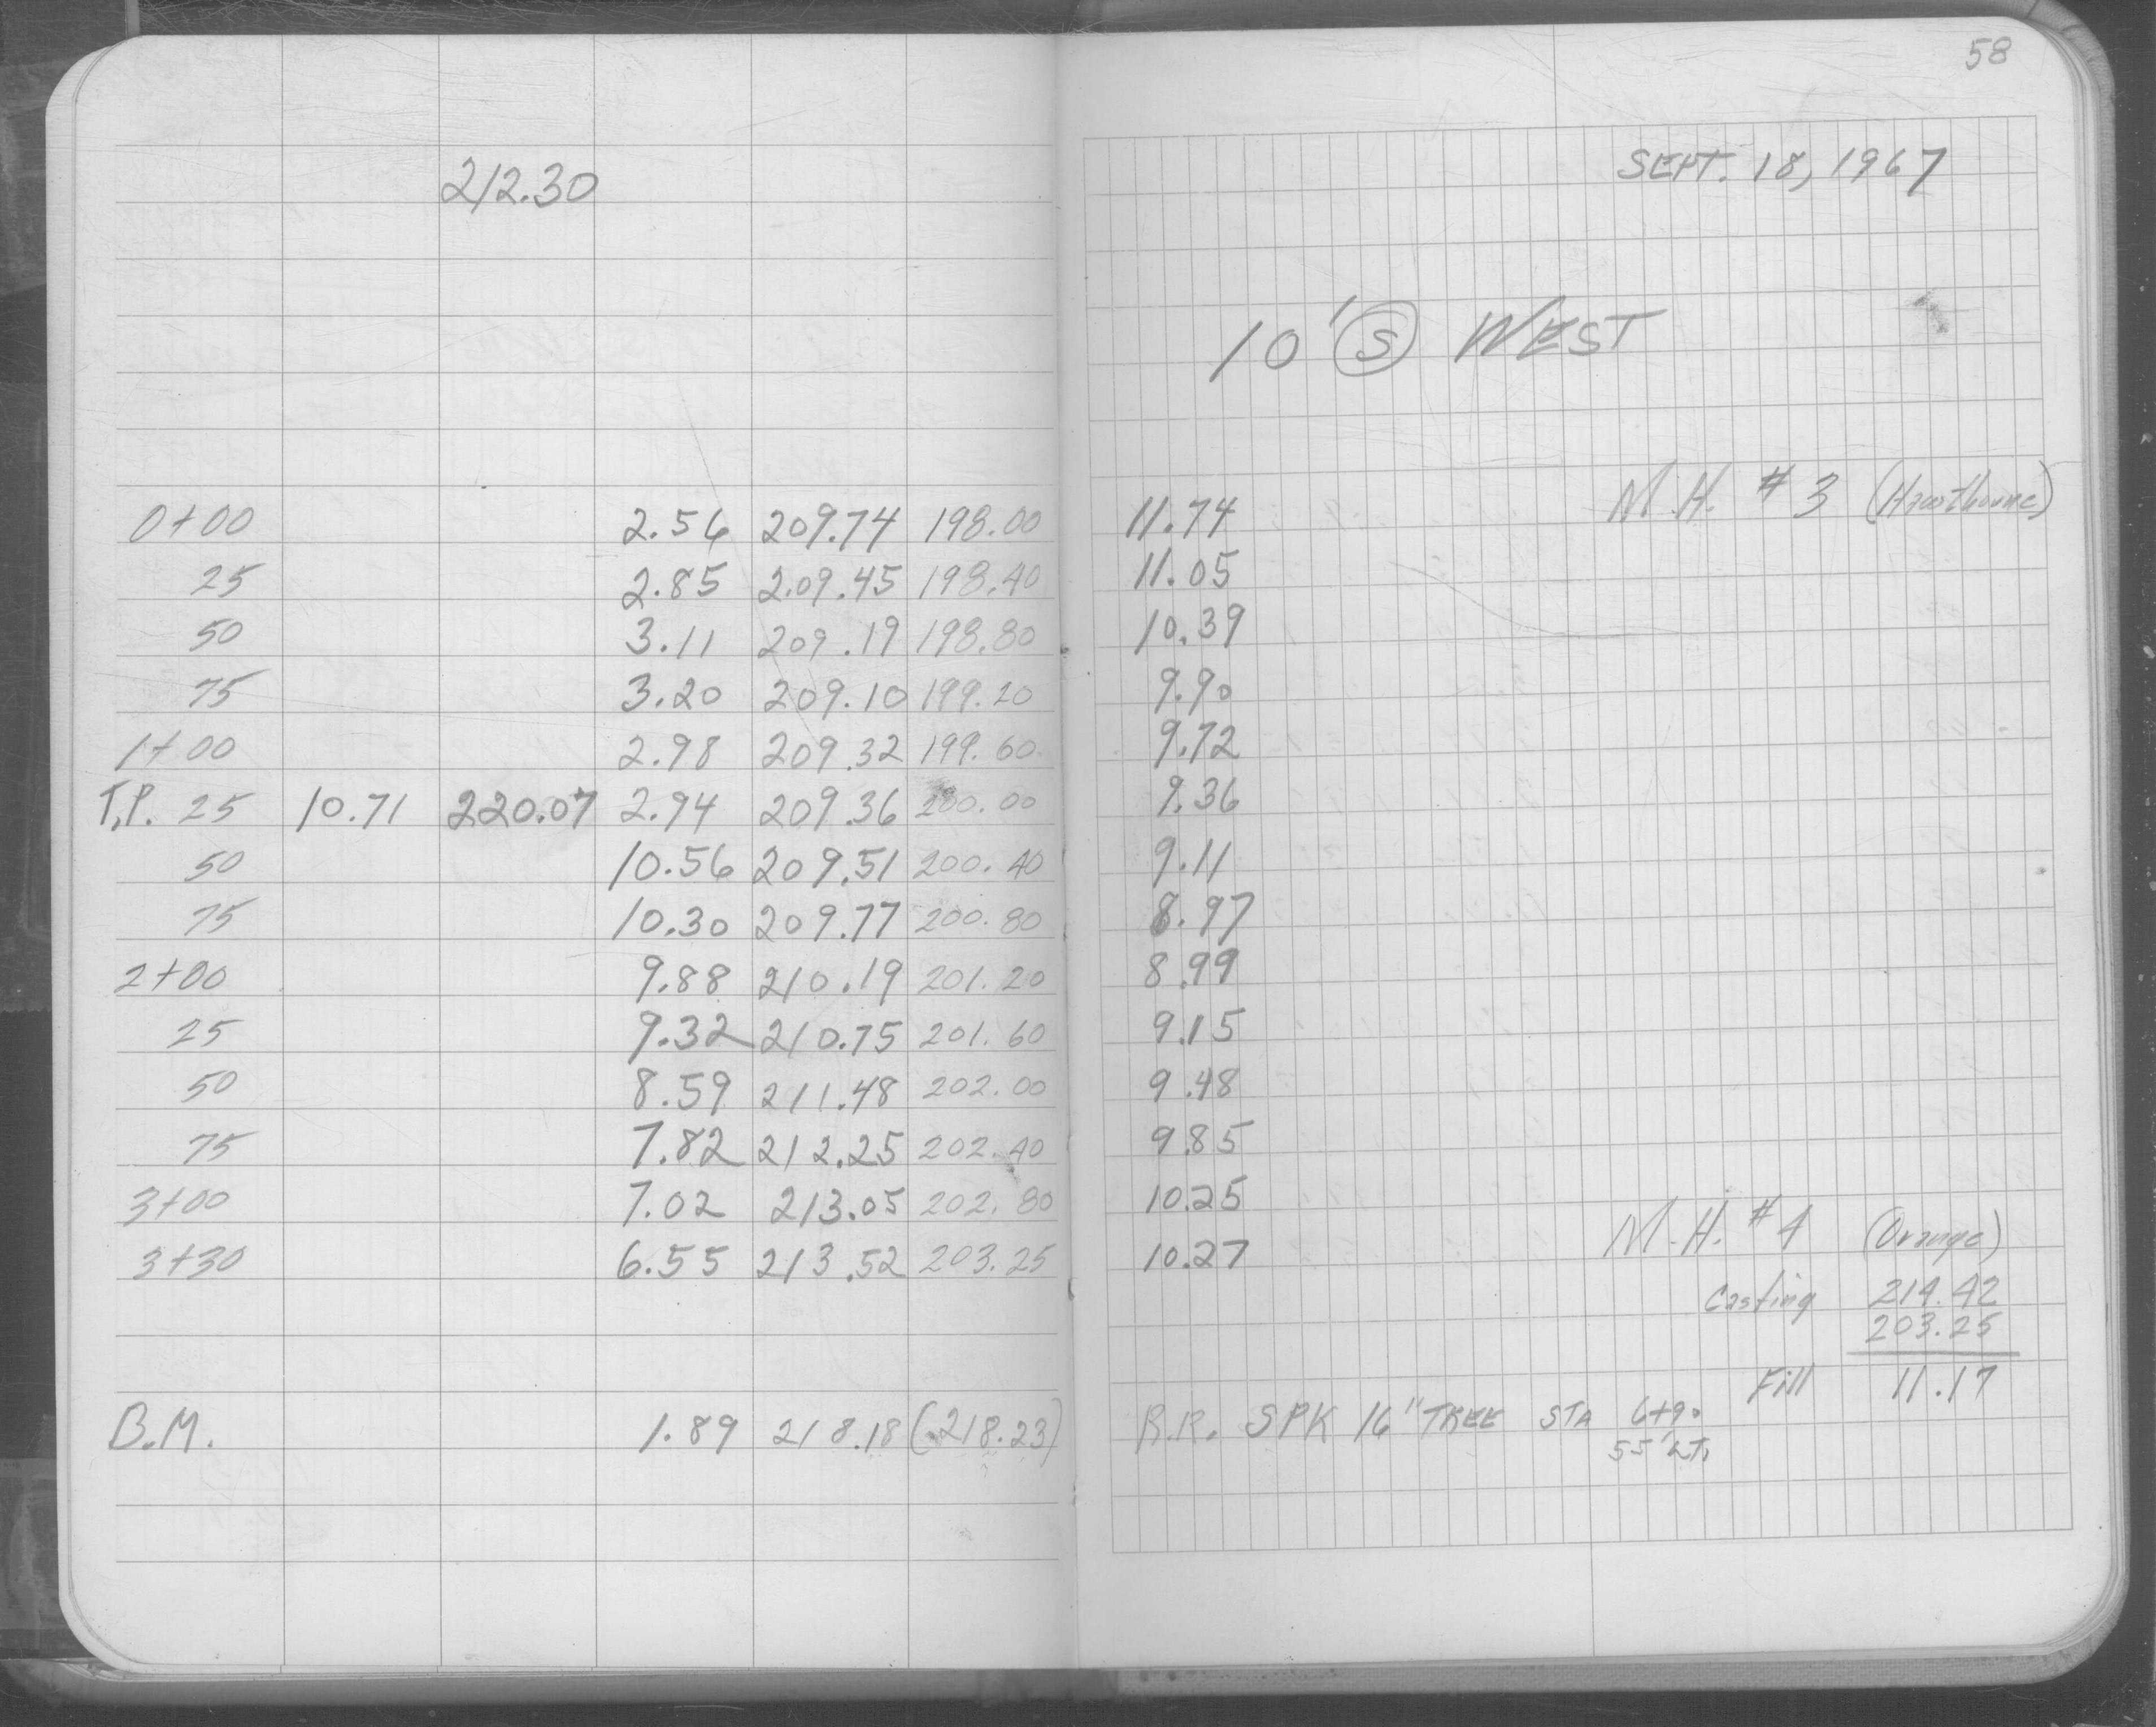 58
212.30 SEPT. 18, 1967
10' Ⓢ WEST
0+00 2.56 209.74 198.00 11.74 M.H. #3 (Hawthorne)
25 2.85 209.45 198.40 11.05
50 3.11 209.19 198.80 10.39
75 3.20 209.10 199.20 9.90
1+00 2.98 209.32 199.60 9.72
T.P. 25 10.71 220.07 2.94 209.36 200.00 9.36
50 10.56 209.51 200.40 9.11
75 10.30 209.77 200.80 8.97
2+00 9.88 210.19 201.20 8.99
25 9.32 210.75 201.60 9.15
50 8.59 211.48 202.00 9.48
75 7.82 212.25 202.40 9.85
3+00 7.02 213.05 202.80 10.25
3+30 6.55 213.52 203.25 10.27 M.H. #4 (Orange)
Casting 214.42
203.25
Fill 11.17
B.M. 1.89 218.18 (218.23) R.R. SPK 16" TREE STA 6+90
55' LT.